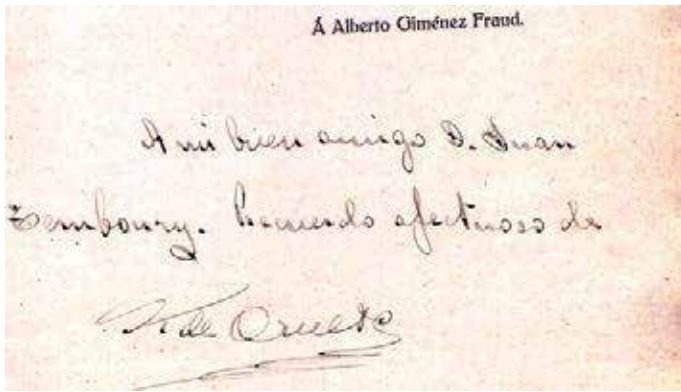 Á Alberto Giménez Fraud.
A mi buen amigo D. Juan
Temboury. Recuerdo afectuoso de
R. de Orueta